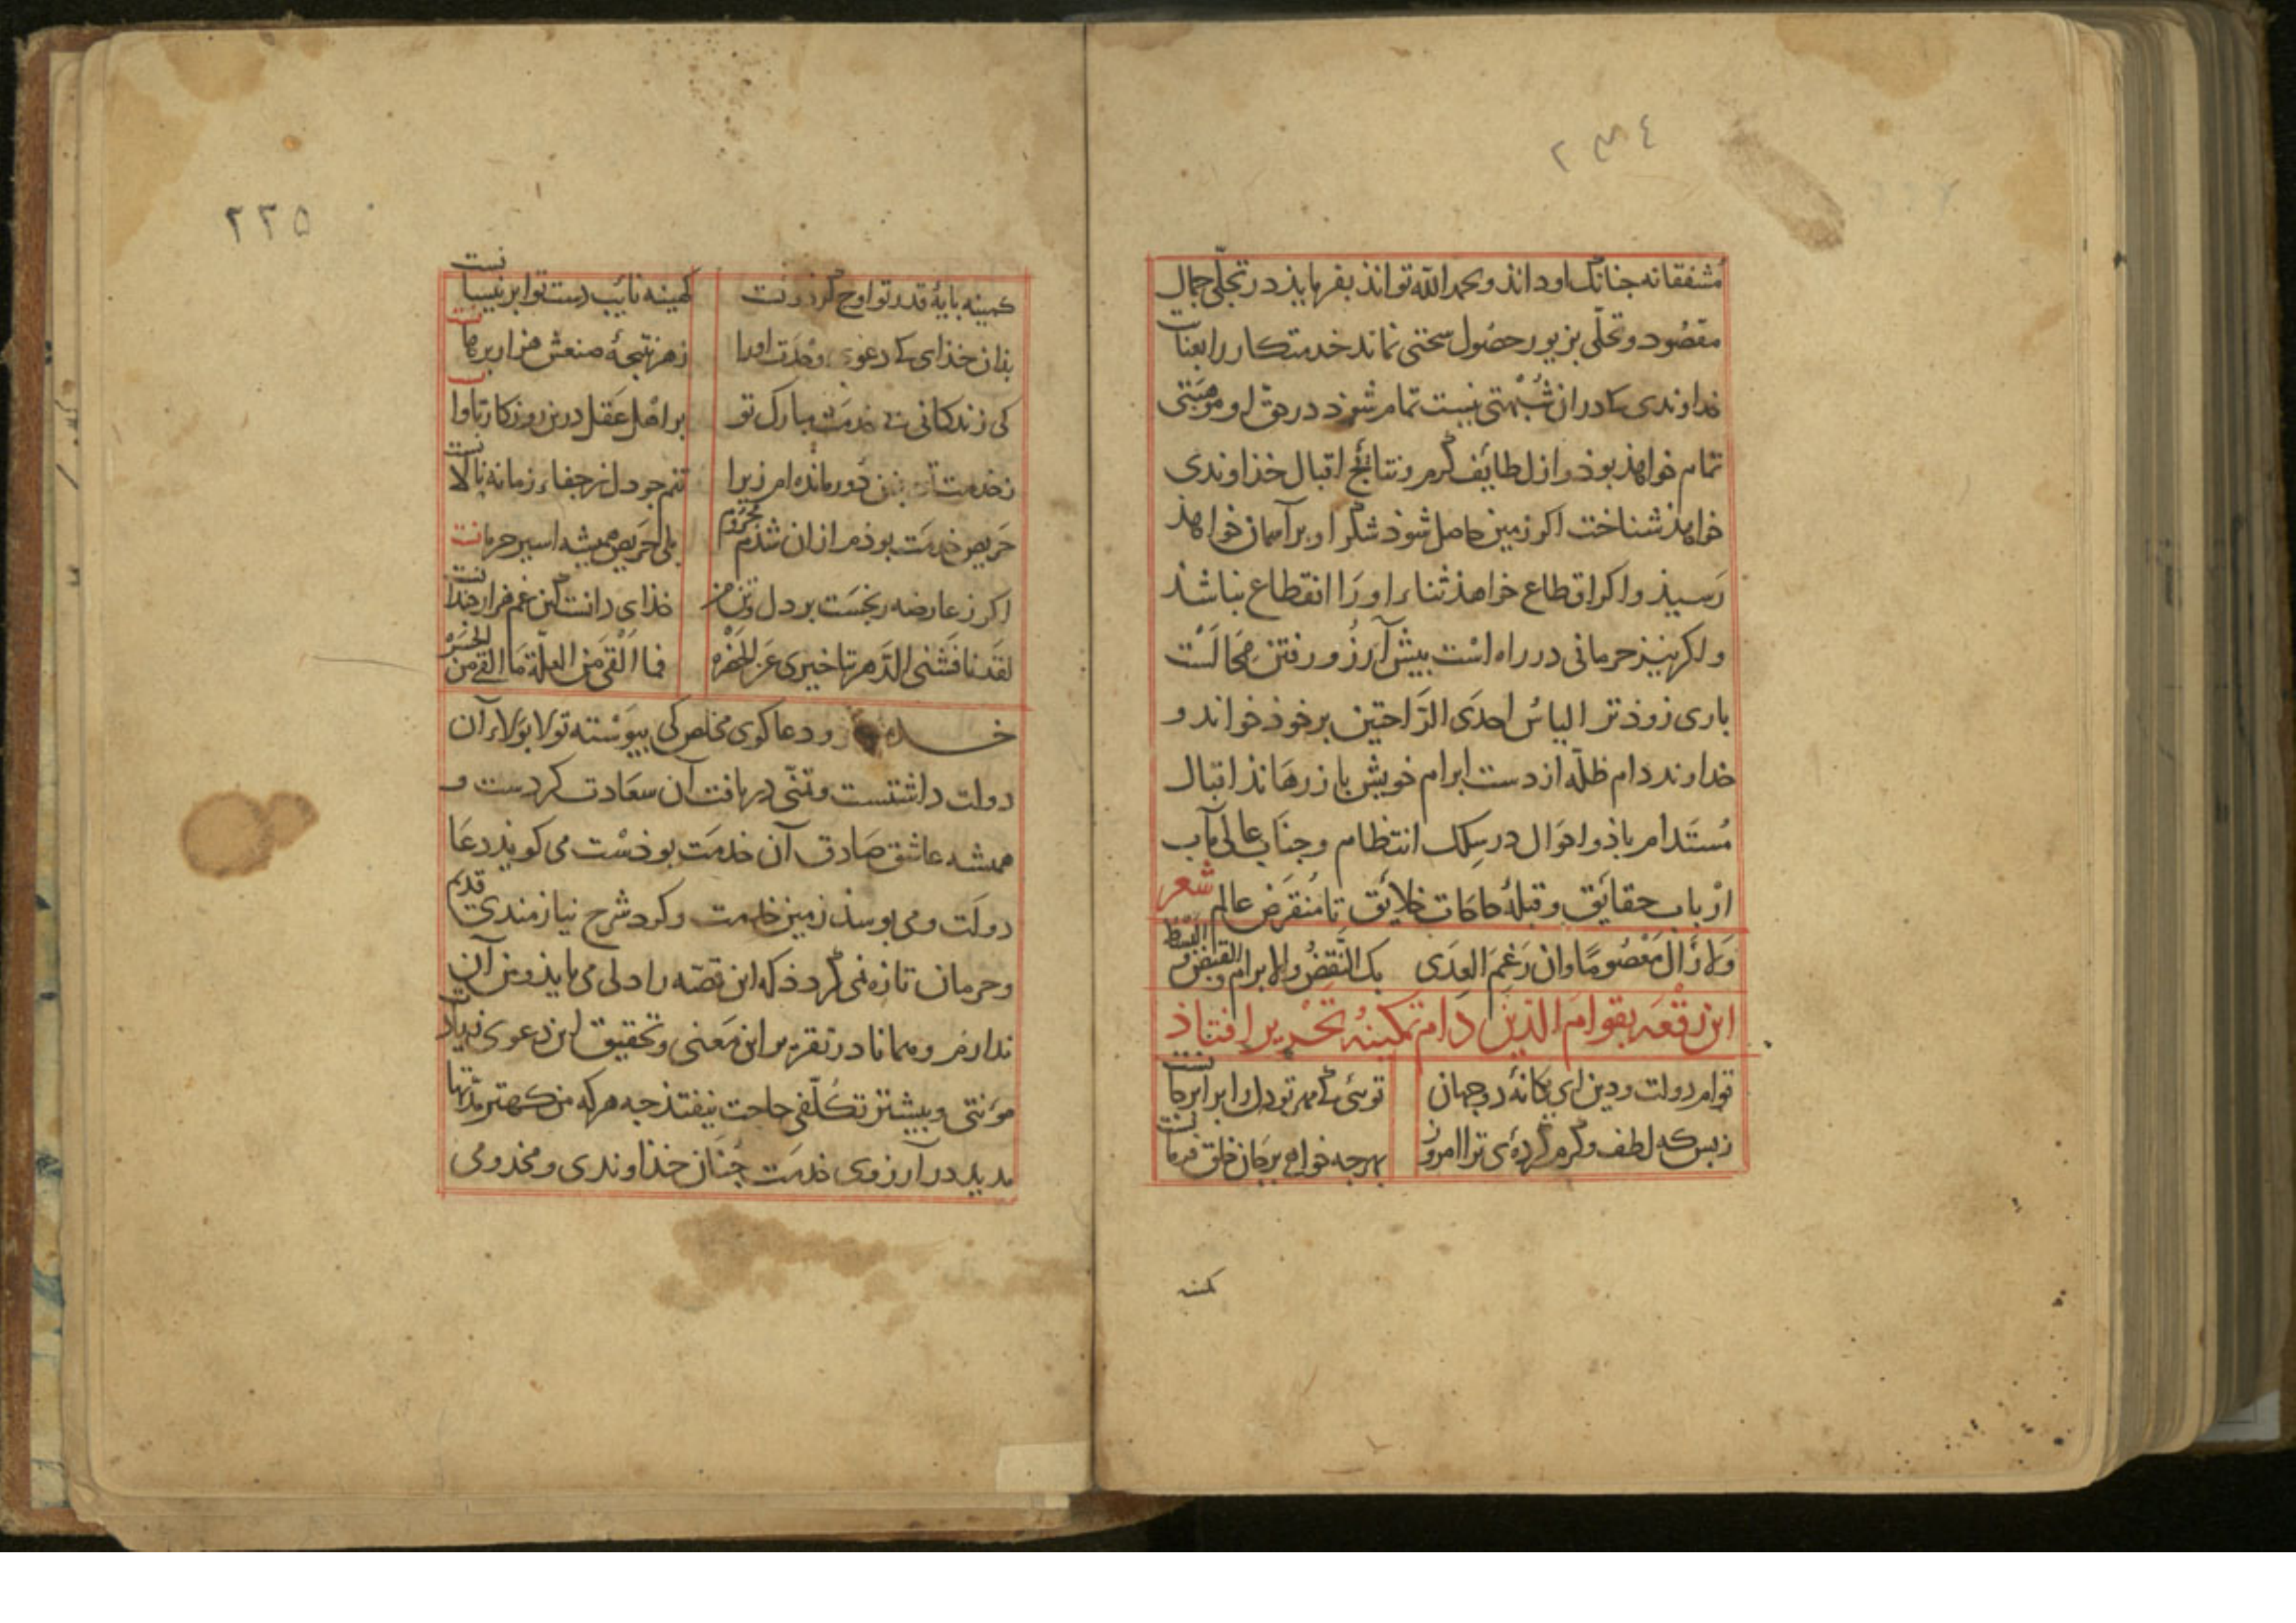 ٢٣٤
مشفقانه جنانک او داند و بحمد الله تواند بفرمایذ در تجلّی جمال
مقصود و تحلّی بزیور حصول سختی نماند خدمتکار را بعنایت
خداوندی که در ان شبهتی نیست تمام شوذ در حق او موهبتی
تمام خواهذ بوذ و از لطایف کرم و نتائج اقبال خذاوندی
خواهذ شناخت اکر زمین حاصل شوذ شکر او بر آسمان خواهذ
رسیذ و اکر اقطاع خواهذ ثناء او را انقطاع نباشذ
و اکر نیز حرمانی در راه است بیش آرزو رفتن محالست
باری زوذتر الیاس احدی الراحتین بر خوذ خواند و
خداوند دام ظلّه از دست ابرام خویش باز رهاند اقبال
مستدام باذ و احوال در سلک انتظام و جناب عالی مآب
ارباب حقایق و قبلهٔ حاجات خلایق تا منقرض عالم شعر
ولا زال معصوما وان رغم العدی بک النقض والابرام والقبض والبسط
این رقعه بقوام الدین دام تمکینه تحریر افتاذ
قوام دولت و دین ای یکانهٔ دو جهان توئی که مهر تو دل را برابر جانست
زبس که لطف و کرم کرده‌ی ترا امروز بهرجه خواهی بر جان خلق فرمانست
کمینه
٢٣٥
کمینه بایهٔ قدر تو اوج کردونست کمینه نائب دست تو ابر نیسانست
بذان خذای که دعوی وحدت او را زهر نتیجهٔ صنعش هزار برهانست
کی زندکانی بی خدمت مبارک تو بر اهل عقل درین روزکار تاوانست
زخدمت تو دور مانده‌ام زیرا تنم جو دل زجفاء زمانه نالانست
حریص خدمت بوذم از ان شذم محروم بلی حریص همیشه اسیر حرمانست
اکر ز عارضه رنجست بر دل و تن من خذای دانذ کین غم هزار جندانست
لقد نافشنی الدهر تاخیری عن الحضره فما القی من العلّة ما القی من الحسره
و دعاکوی مخلص کی بیوسته تولا بولاء آن
دولت داشتست و تمنّی دریافت آن سعادت کردست و
همیشه عاشق صادق آن خدمت بوذست می کویذ دعا
دولت و می بوسذ زمین خدمت و کرد شرح نیازمندی قدیم
و حرمان تازه نمی کردد که این قصه را دلی می بایذ و من آن
ندارم و همانا در تقریر این معنی و تحقیق این دعوی زیادت
مؤنتی و بیشتر تکلفی حاجت نیفتذ جه هر که من کهتر مدتها
مدید در آرزوی خدمت جنان خذاوندی و مخدومی